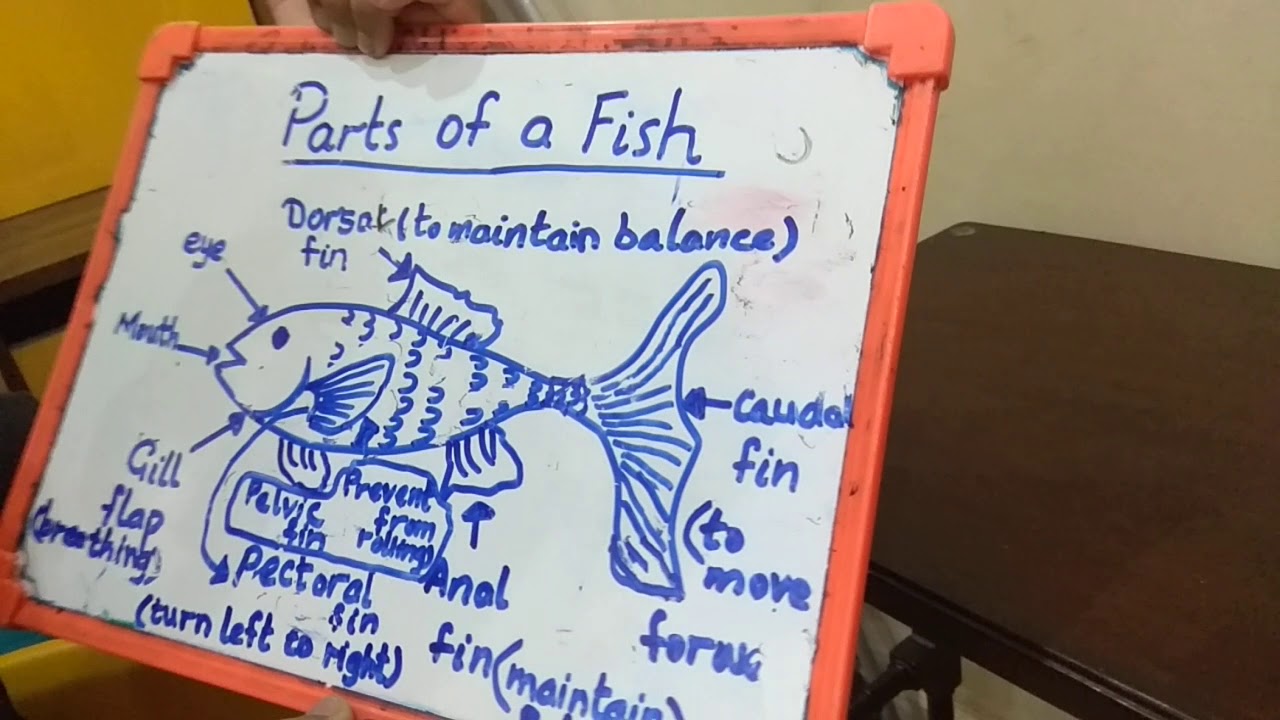 Parts of a Fish
Dorsal (to maintain balance)
fin
eye
Mouth
Gill
flap
(breathing)
Pelvic
fin
Prevent
from
rolling)
Pectoral
fin
(turn left to right)
Anal
fin (maintain
caudal
fin
(to
move